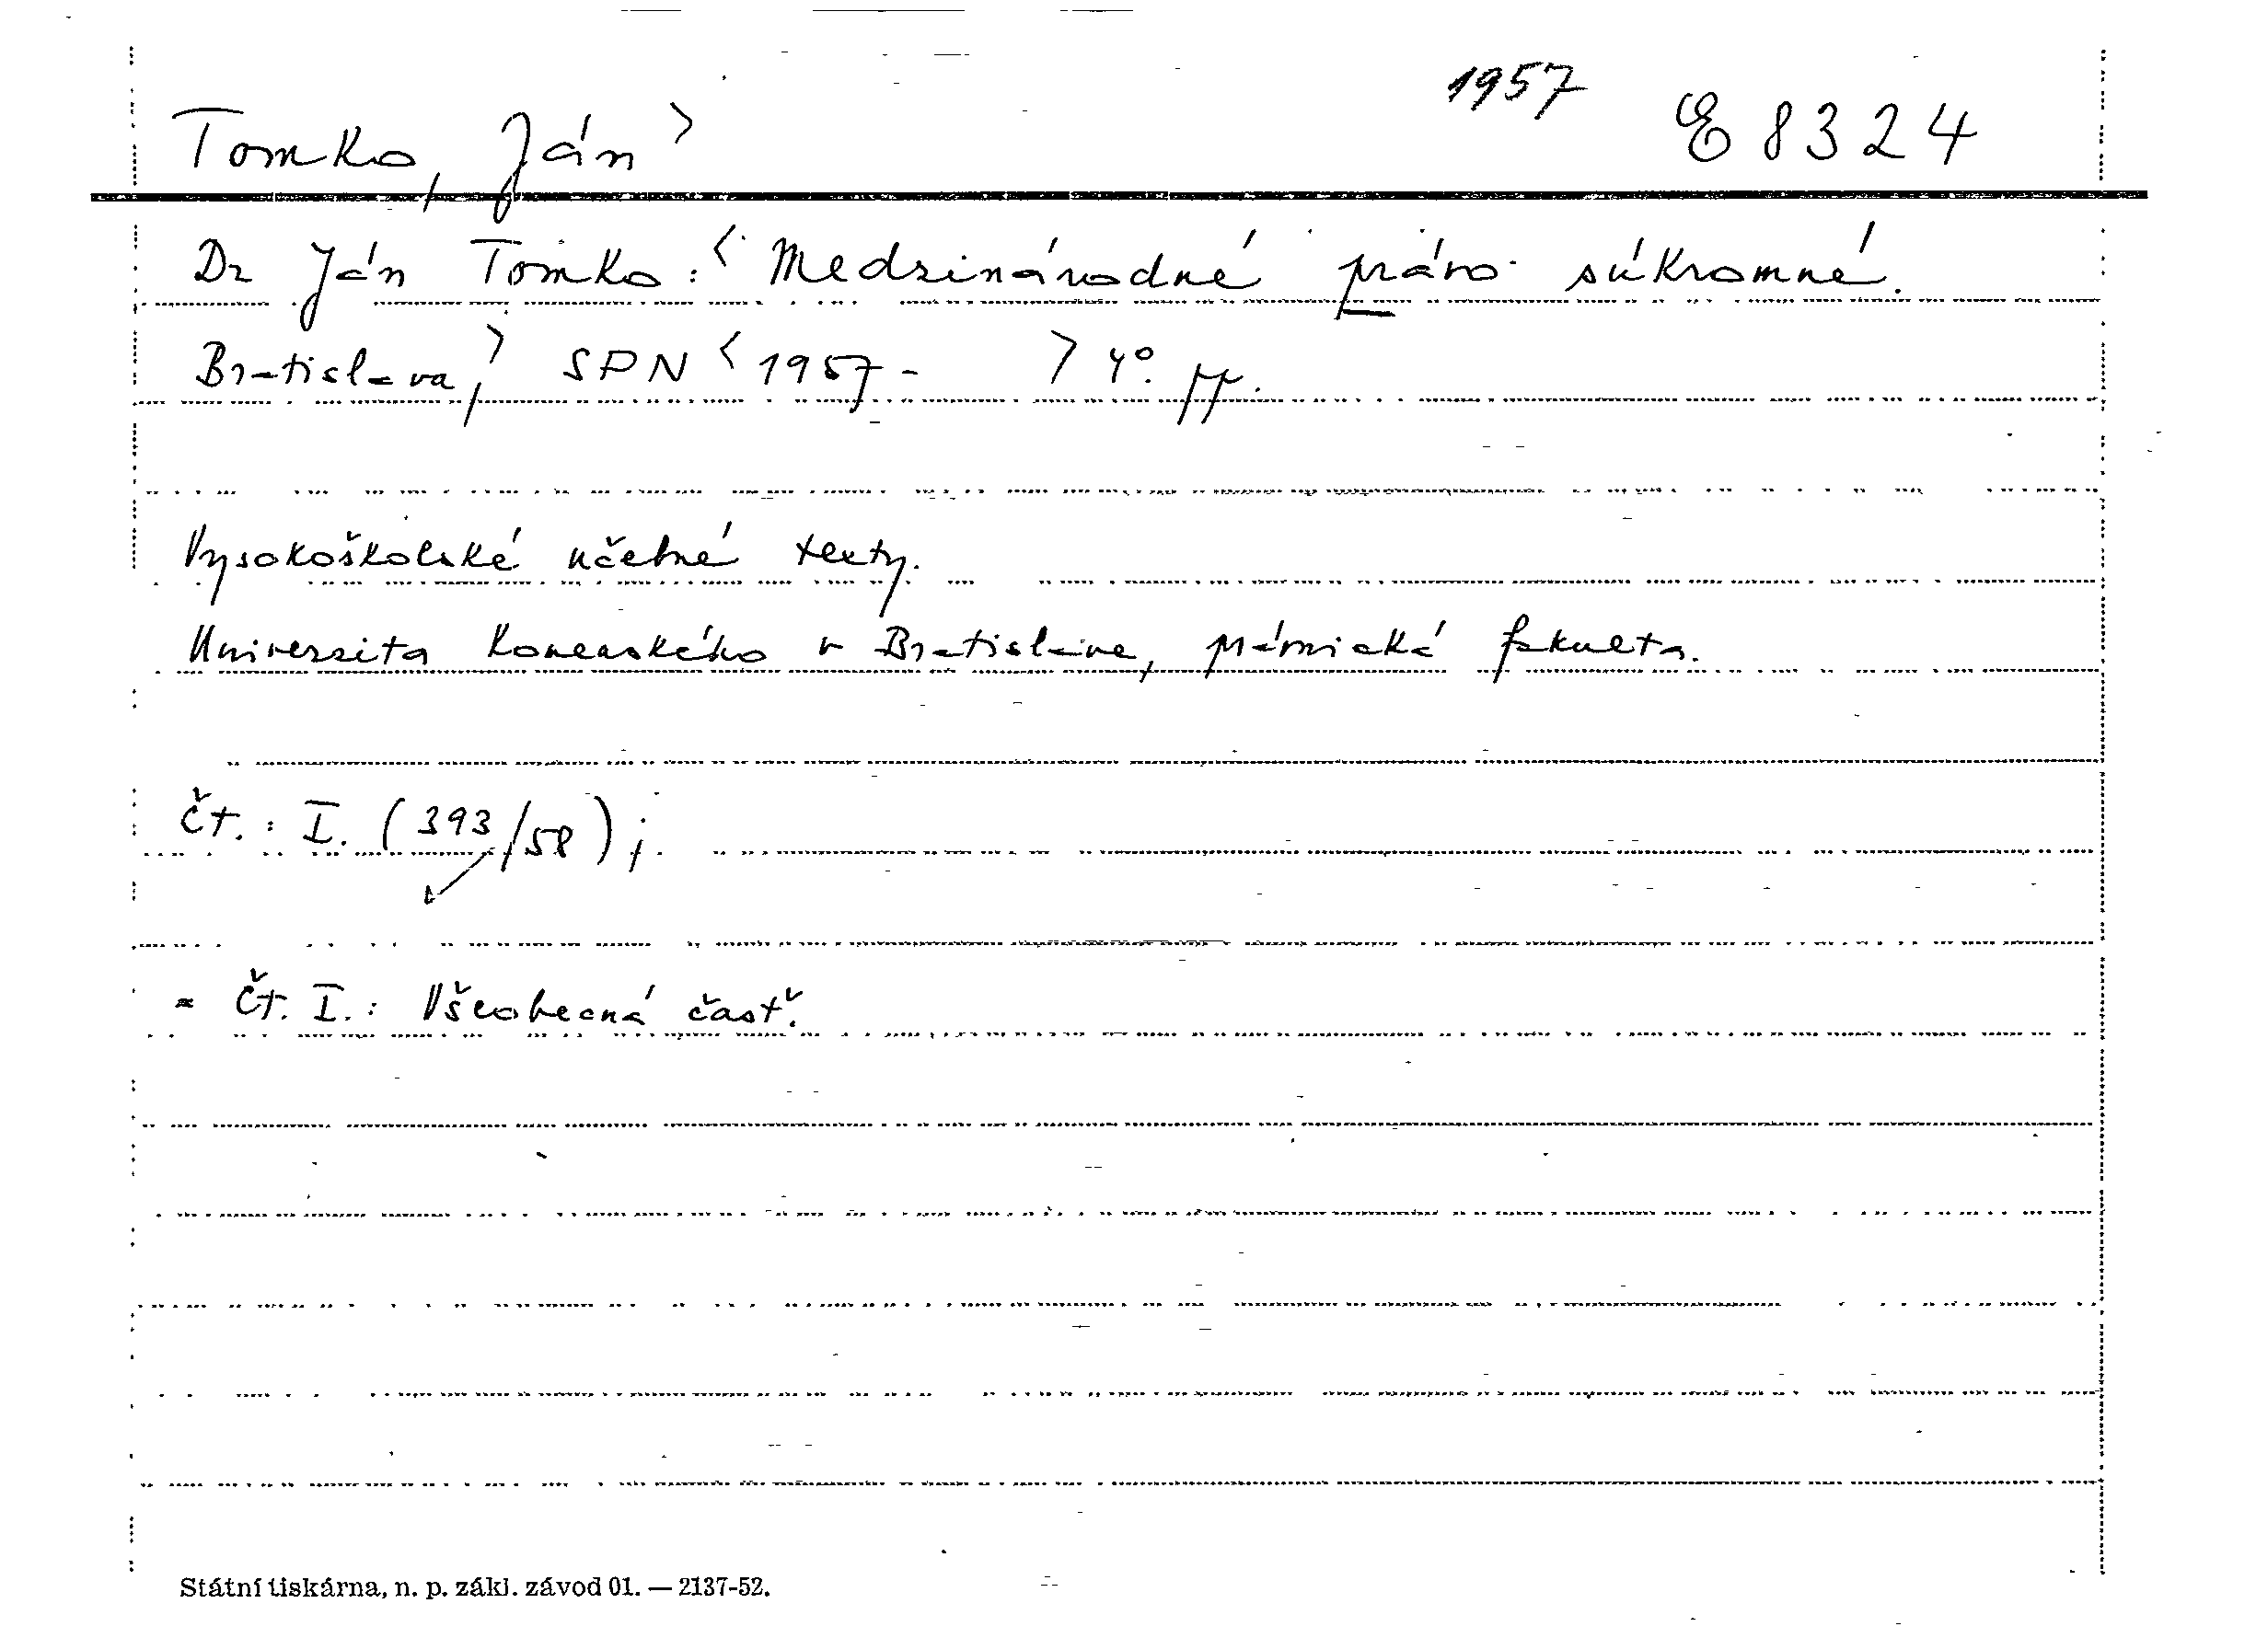 1957
Tomko, Ján > E 8324
Dr Ján Tomko: < Medzinárodné právo súkromné.
Bratislava, > SPN < 1957 - > 4°. pp.
Vysokoškolské učebné texty.
Universita Komenského v Bratislave, právnická fakulta.
Čt.: I. (393/58);
= Čt. I.: Všeobecná časť.
Státní tiskárna, n. p. zákl. závod 01. — 2137-52.